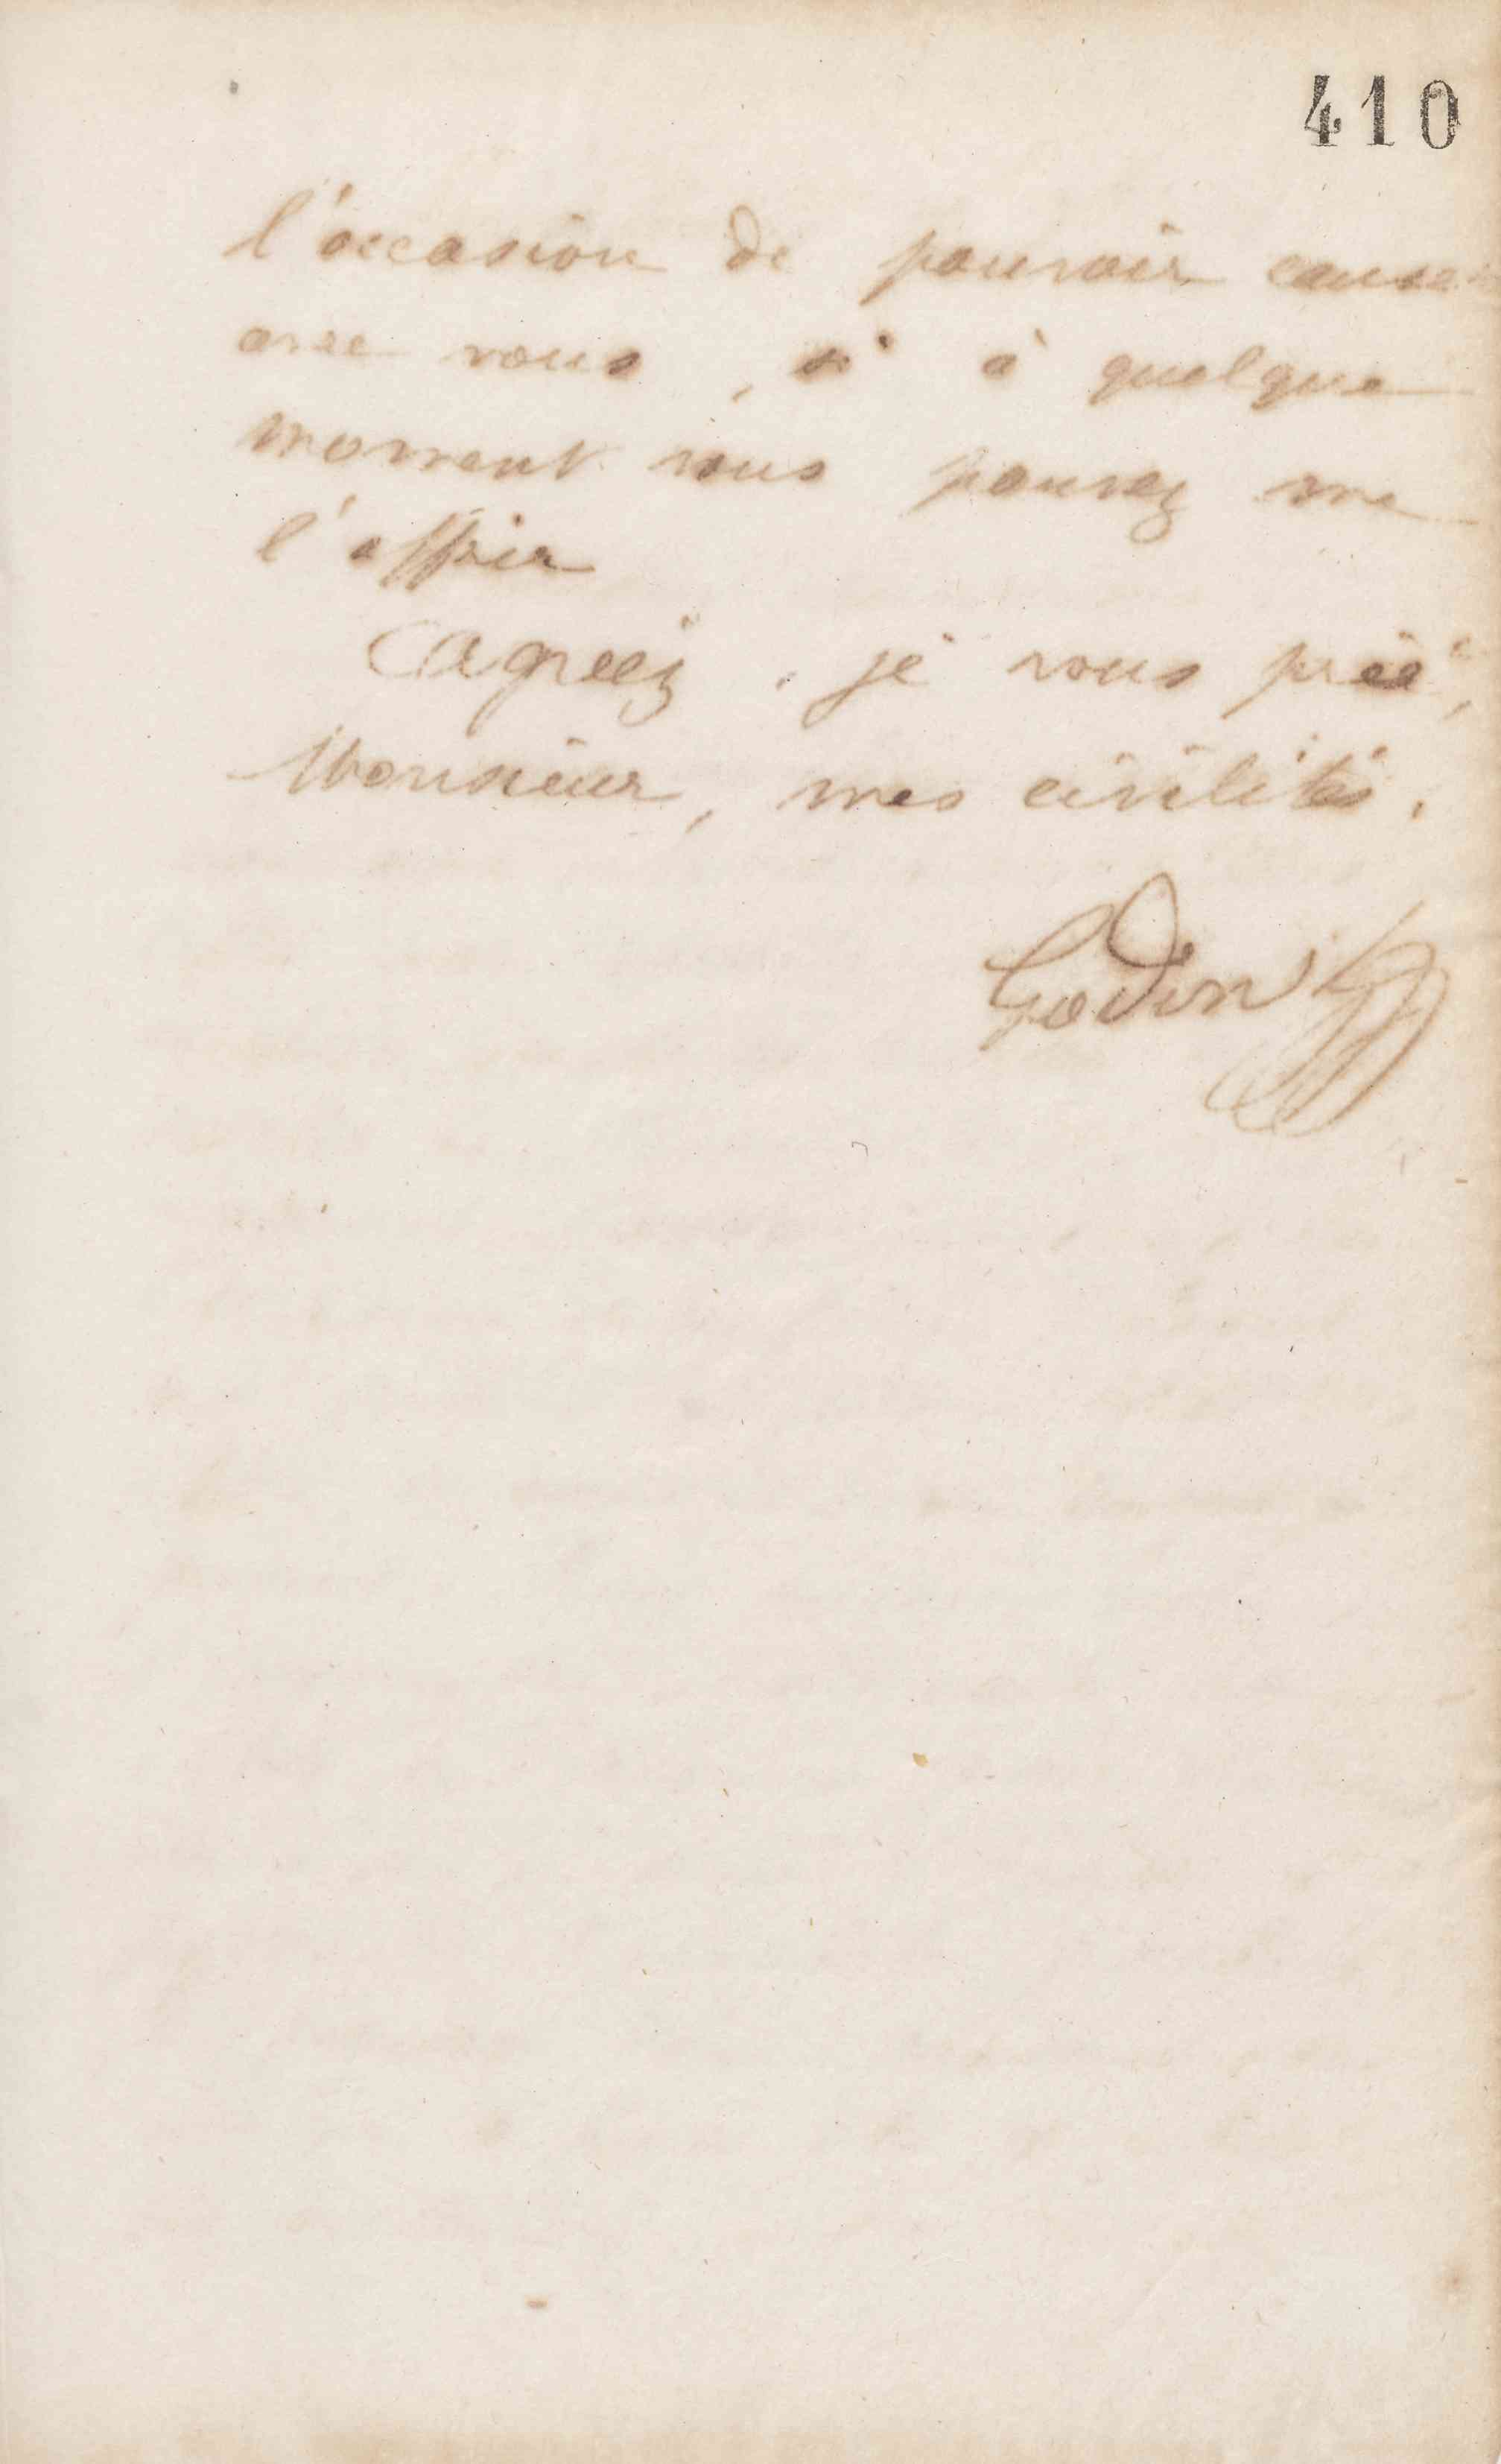 410
l'occasion de pouvoir causer
avec vous, si à quelque
moment vous pouvez me
l'offrir
Agréez, je vous prie,
Monsieur, mes civilités.
Godin